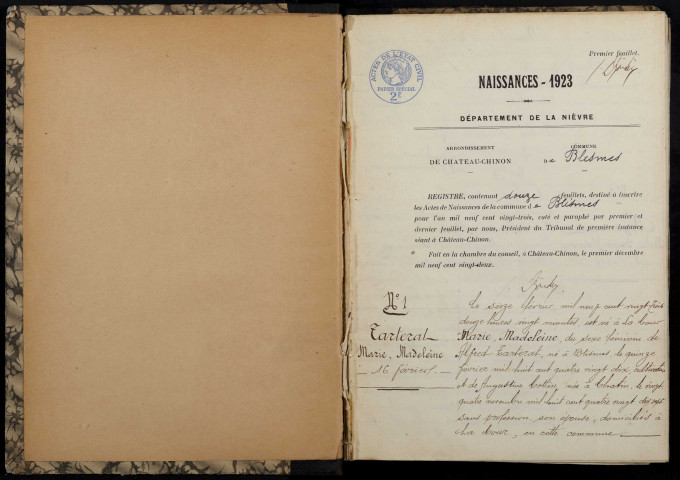 Premier feuillet.
ACTES DE L'ETAT CIVIL
PAPIER SPECIAL
2F
NAISSANCES - 1923
DÉPARTEMENT DE LA NIÈVRE
ARRONDISSEMENT
DE CHATEAU-CHINON
COMMUNE
de Blismes
REGISTRE, contenant douze feuillets, destiné à inscrire
les Actes de Naissances de la commune de Blismes
pour l'an mil neuf cent vingt-trois, coté et paraphé par premier et
dernier feuillet, par nous, Président du Tribunal de première instance
séant à Château-Chinon.
Fait en la chambre du conseil, à Château-Chinon, le premier décembre
mil neuf cent vingt-deux.
N° 1
Tarterat
Marie, Madeleine
16 février
Le seize février mil neuf cent vingt trois
douze heures vingt minutes est née à la Cour
Marie, Madeleine, du sexe féminin de
Alfred Tarterat, né à Blismes le quinze
février mil huit cent quatre vingt dix, cultivateur
et de Augustine, née à Chatin, le vingt
quatre novembre mil huit cent quatre vingt dix
sans profession, son épouse, domiciliés à
La Cour, en cette commune